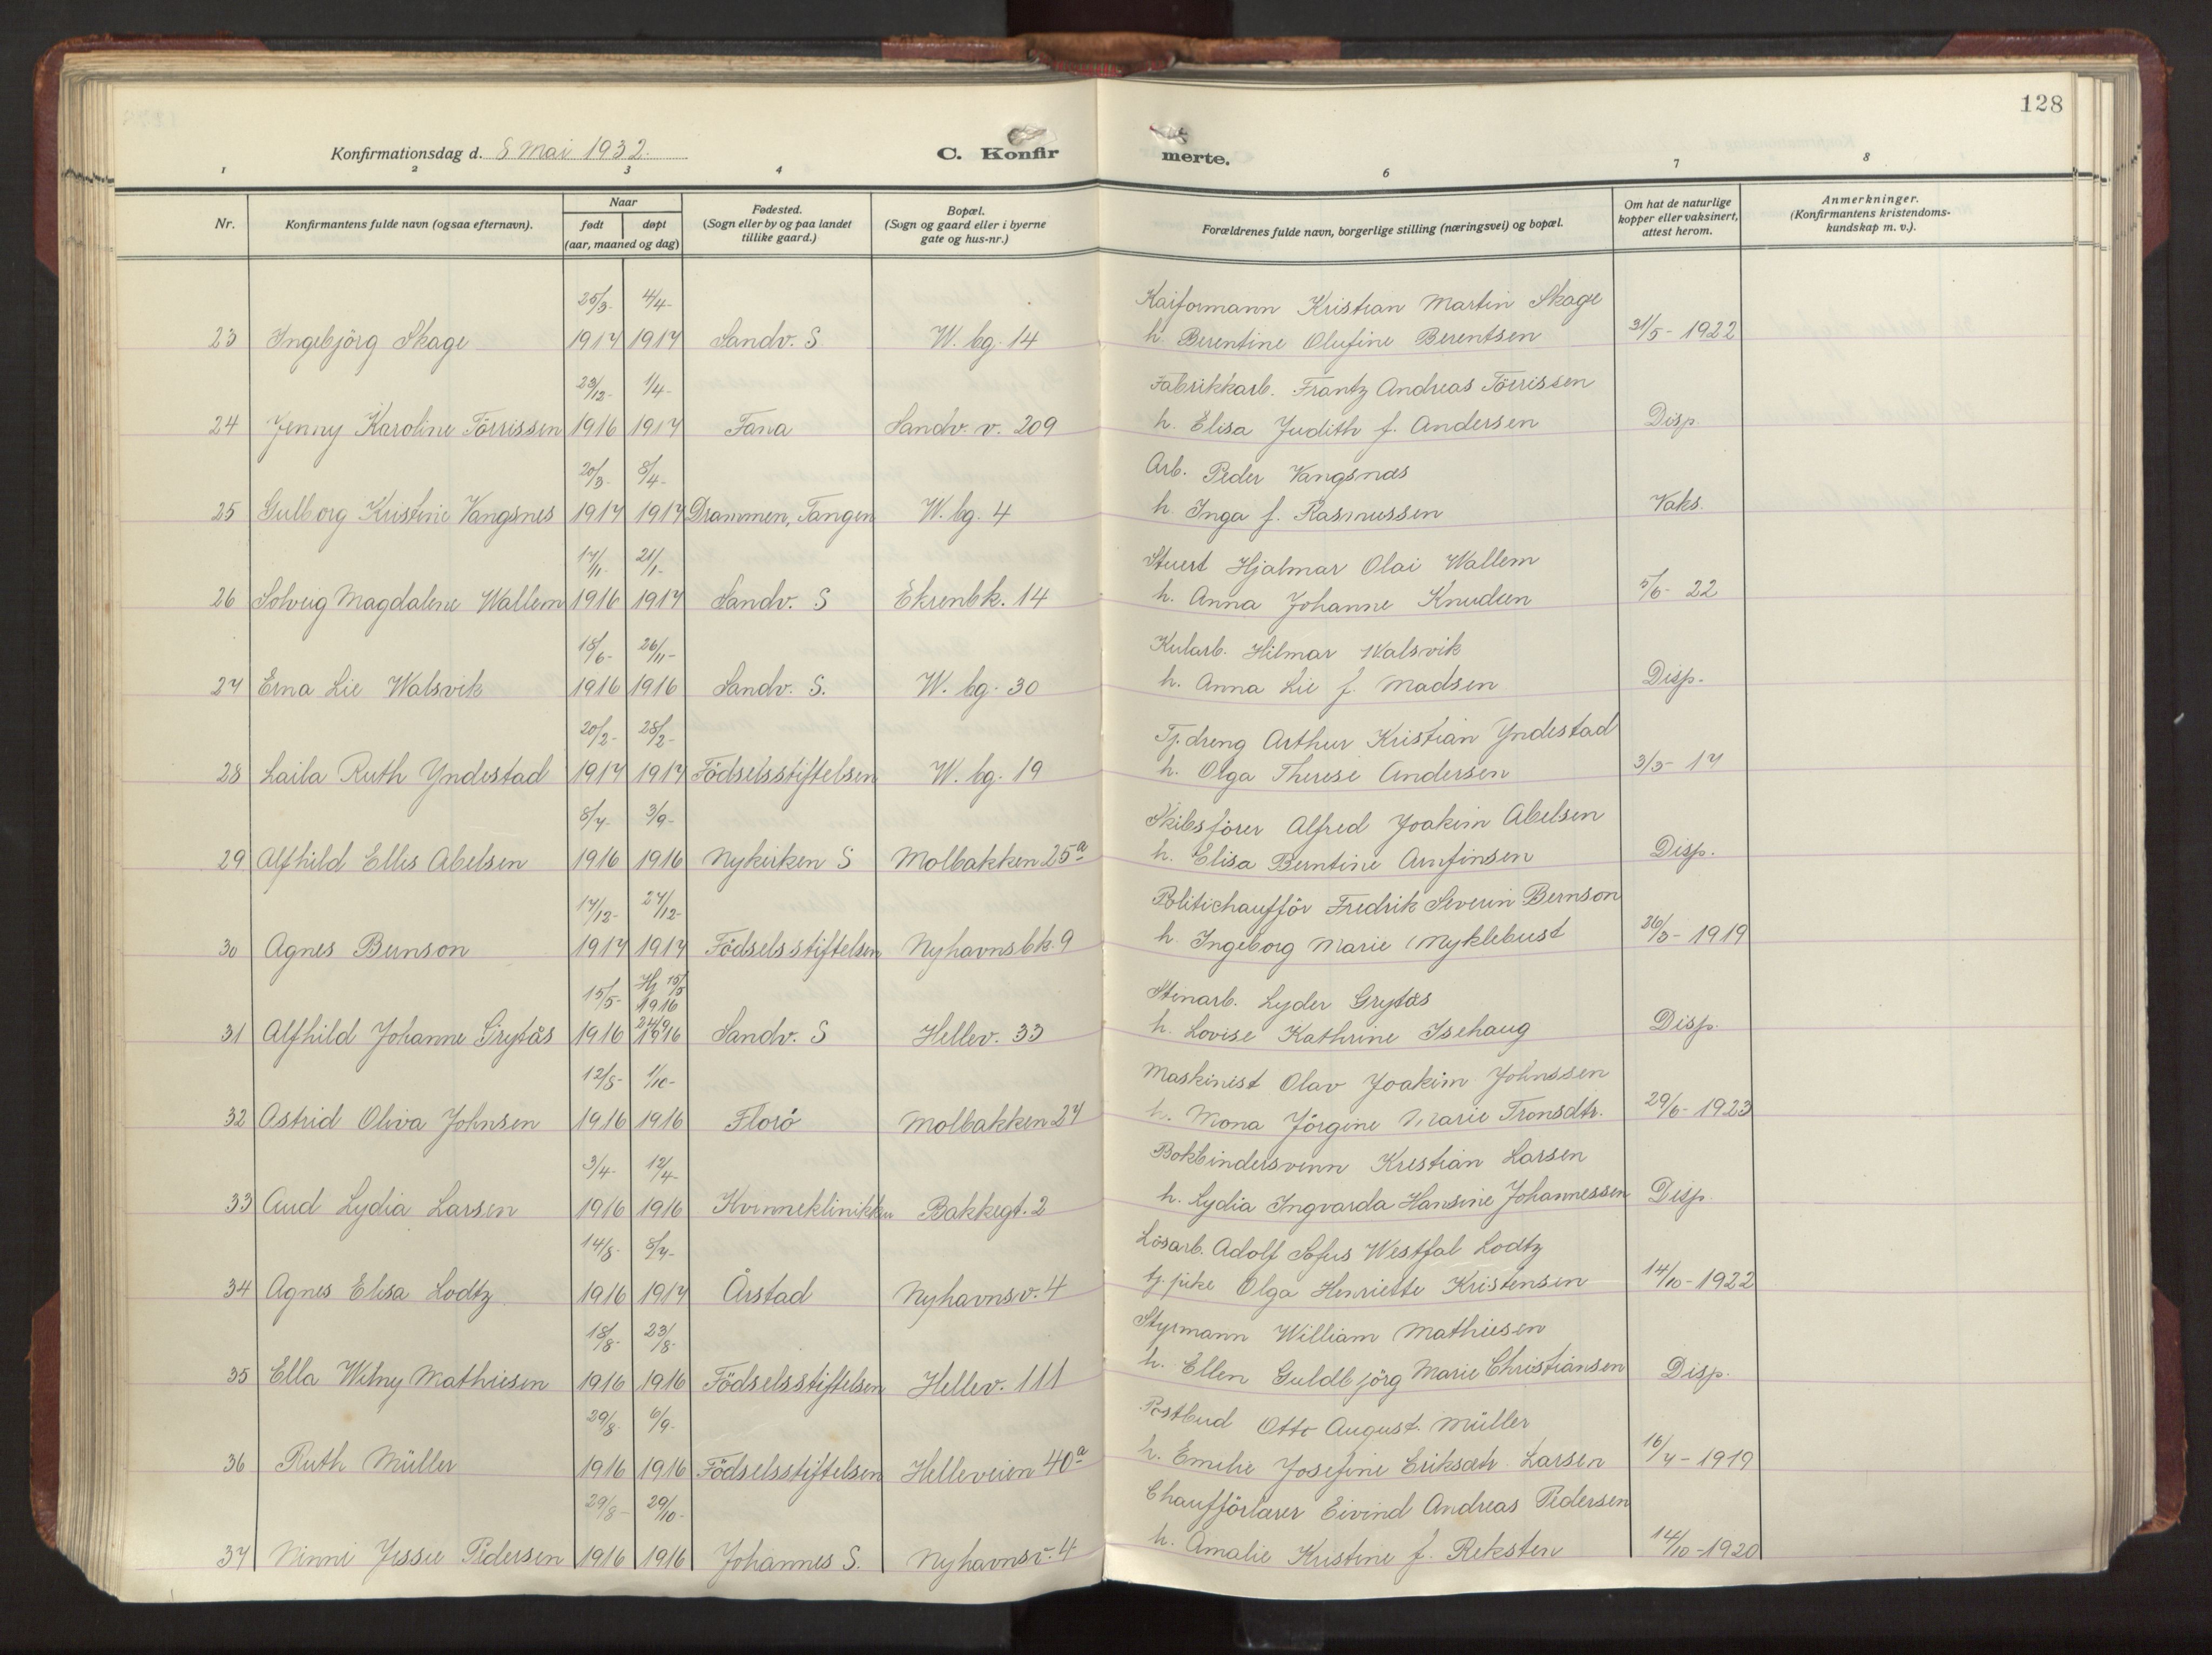 128
Konfirmationsdag d. 8 Mai 1932.
C. Konfirmerte.
1 2 3 4 6 7 8
Nr.
Konfirmantens fulde navn (ogsaa efternavn).
Naar
født døpt
(aar, maaned og dag)
Fødested.
(Sogn eller by og paa landet
tillike gaard.)
Bopæl.
(Sogn og gaard eller i byerne
gate og hus-nr.)
Forældrenes fulde navn, borgerlige stilling (næringsvei) og bopæl.
Om hat de naturlige
kopper eller vaksinert,
attest herom.
Anmerkninger.
(Konfirmantens kristendoms-
kundskap m. v.).
25/3- 4/4- Kaiformann Kristian Martin Skage
23 Ingebjörg Skage 1917 1917 Sandv. S W. bg. 14 h. Berentine Olufine Berentsen 31/5- 1922
23/12- 1/4- Fabrikkarb. Frantz Andreas Törrissen
24 Jenny Karoline Törrissen 1916 1917 Fana Sandv. v. 209 h. Elisa Judith f. Andersen Disp.
20/3- 8/4- Arb. Peder Vangsnæs
25 Gulborg Kristine Vangsnes 1917 1917 Drammen, Tangen W. bg. 4 h. Inga f. Rasmussen Vaks.
17/11- 21/1- Stuert Hjalmar Olai Wallem
26 Solveig Magdalene Wallem 1916 1917 Sandv. S Ekrenbk. 14 h. Anna Johanne Knudsen 5/6- 22
18/6- 26/11- Kularb. Hilmar Walsvik
27 Erna Lie Walsvik 1916 1916 Sandv. S. W. bg. 30 h. Anna Lie f. Madsen Disp.
20/2- 28/2- Tj.dreng Arthur Kristian Yndestad
28 Laila Ruth Yndestad 1917 1917 Födselsstiftelsen W. bg. 19 h. Olga Therese Andersen 3/3- 17
8/7- 3/9- Skibsförer Alfred Joakim Abelsen
29 Alfhild Ellis Abelsen 1916 1916 Nykirken S Molbakken 25a h. Elisa Berntine Arnfinsen Disp.
17/12- 27/12- Politichaufför Fredrik Severin Bernson
30 Agnes Bernson 1917 1917 Födselsstiftelsen Nyhavnsbk. 9 h. Ingeborg Marie Myklebust 26/3- 1919
15/5- Hj 15/5 1916 Stenarb. Lyder Grytås
31 Alfhild Johanne Grytås 1916 24/9 1916 Sandv. S Hellev. 33 h. Lovise Kathrine Isehaug Disp.
12/8- 1/10- Maskinist Olav Joakim Johnssen
32 Astrid Oliva Johnsen 1916 1916 Florö Molbakken 27 h. Mona Jörgine Marie Tronsdtr. 29/6- 1923
3/4- 12/4- Bokbindersvenn Krestian Larsen
33 Aud Lydia Larsen 1916 1916 Kvinneklinikken Bakkegt. 2 h. Lydia Ingvarda Hansine Johannessen Disp.
14/8- 8/7- Lösarb. Adolf Sofus Westfal Lodtz
34 Agnes Elisa Lodtz 1916 1917 Årstad Nyhavnsv. 4 tj. pike Olga Henriette Kristensen 14/10- 1922
18/8- 23/8- Styrmann William Mathiesen
35 Ella Welny Mathiesen 1916 1916 Födselsstiftelsen Hellev. 111 h. Ellen Guldbjörg Marie Christiansen Disp.
29/8- 6/9- Postbud Otto August. Müller
36 Ruth Müller 1916 1916 Födselsstiftelsen Helleveien 40a h. Emelie Josefine Eriksdtr. Larsen 16/7- 1919
29/8- 29/10- Chaufförlærer Eivind Andreas Pedersen
37 Ninni Jessie Pedersen 1916 1916 Johannes S. Nyhavnsv. 4 h. Amalie Kristine f. Reksten 14/10- 1920